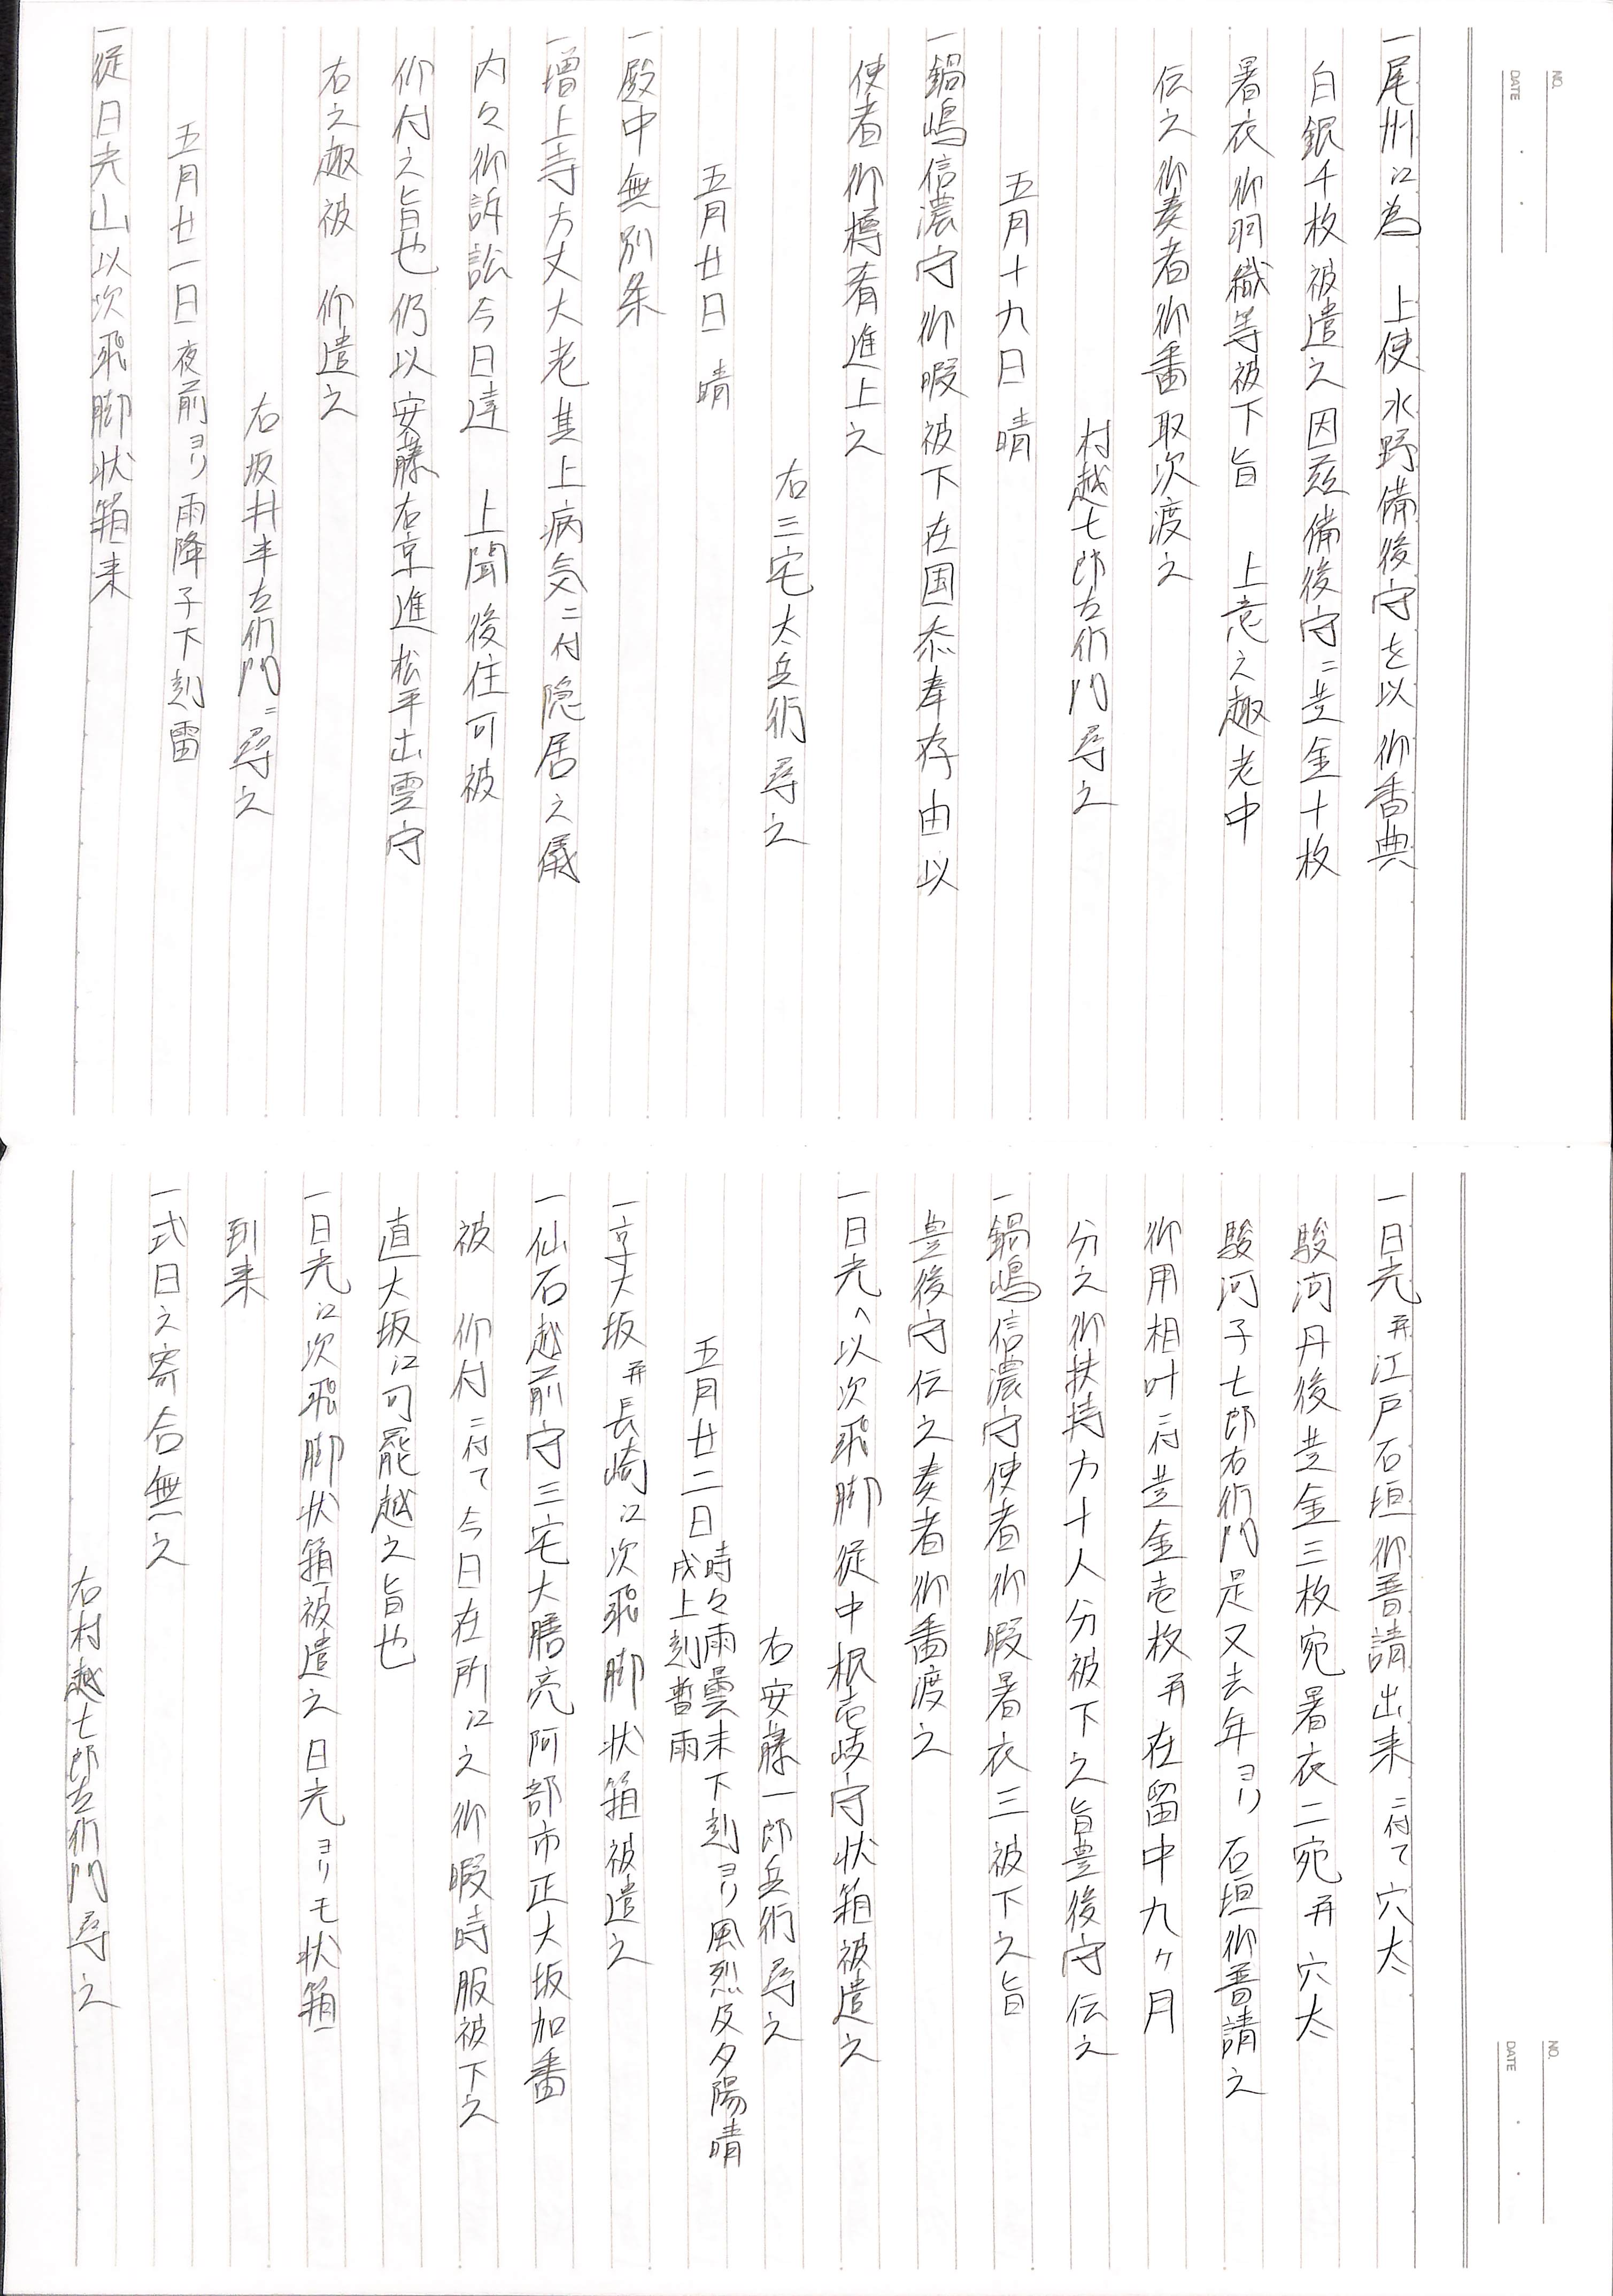 NO.
DATE
一尾州江為　上使水野備後守を以御香典
白銀千枚被遣之因茲備後守ニ黄金十枚
暑衣御羽織等被下旨　上意之趣老中
伝之御奏者御番取次渡之
村越七郎左衛門尋之
五月十九日 晴
一鍋嶋信濃守御暇被下在国忝奉存由以
使者御樽肴進上之
右三宅太兵衛尋之
五月廿日　晴
一殿中無別条
一増上寺方丈大老其上病気ニ付隠居之儀
内々御訴訟今日達　上聞後住可被
仰付之旨也仍以安藤右京進松平出雲守
右之趣被　仰遣之
右坂井半左衛門ニ尋之
五月廿一日夜前ヨリ雨降子下刻雷
一従日光山以次飛脚状箱来
NO.
DATE
一日光并江戸石垣御普請出来ニ付て穴太
駿河丹後黄金三枚宛暑衣二宛并穴太
駿河子七郎右衛門是又去年ヨリ石垣御普請之
御用相叶ニ付黄金壱枚并在留中九ヶ月
分之御扶持方十人分被下之旨豊後守伝之
一鍋嶋信濃守使者御暇暑衣三被下之旨
豊後守伝之奏者御番渡之
一日光へ以次飛脚従中根壱岐守状箱被遣之
右安藤一郎兵衛尋之
五月廿二日時々雨曇未下刻ヨリ風烈及夕陽晴
戌上刻暫雨
一京大坂并長崎江次飛脚状箱被遣之
一仙石越前守三宅大膳亮阿部市正大坂加番
被　仰付ニ付て今日在所江之御暇時服被下之
直大坂江可罷越之旨也
一日光江次飛脚状箱被遣之日光ヨリモ状箱
到来
一式日之寄合無之
右村越七郎左衛門尋之